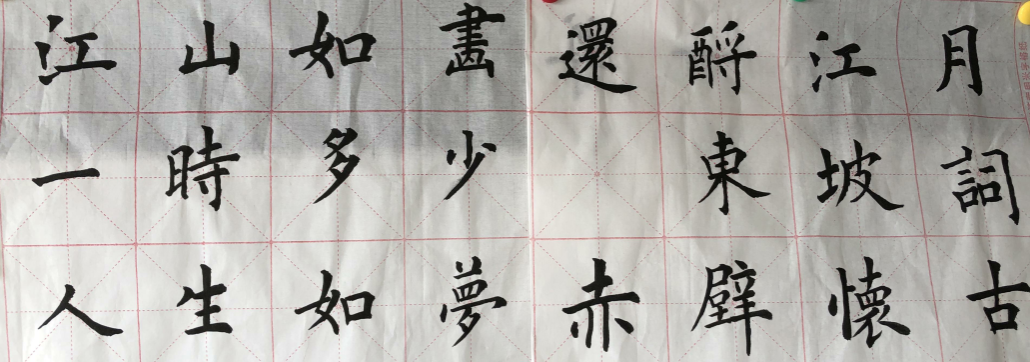 江山如畫
一時多少
人生如夢
還酹江月
東坡詞
赤壁懷古